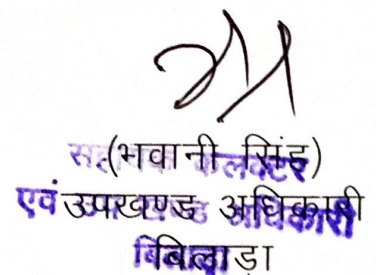 (भवानी सिंह)
एवं उपखण्ड अधिकारी
बिलाड़ा